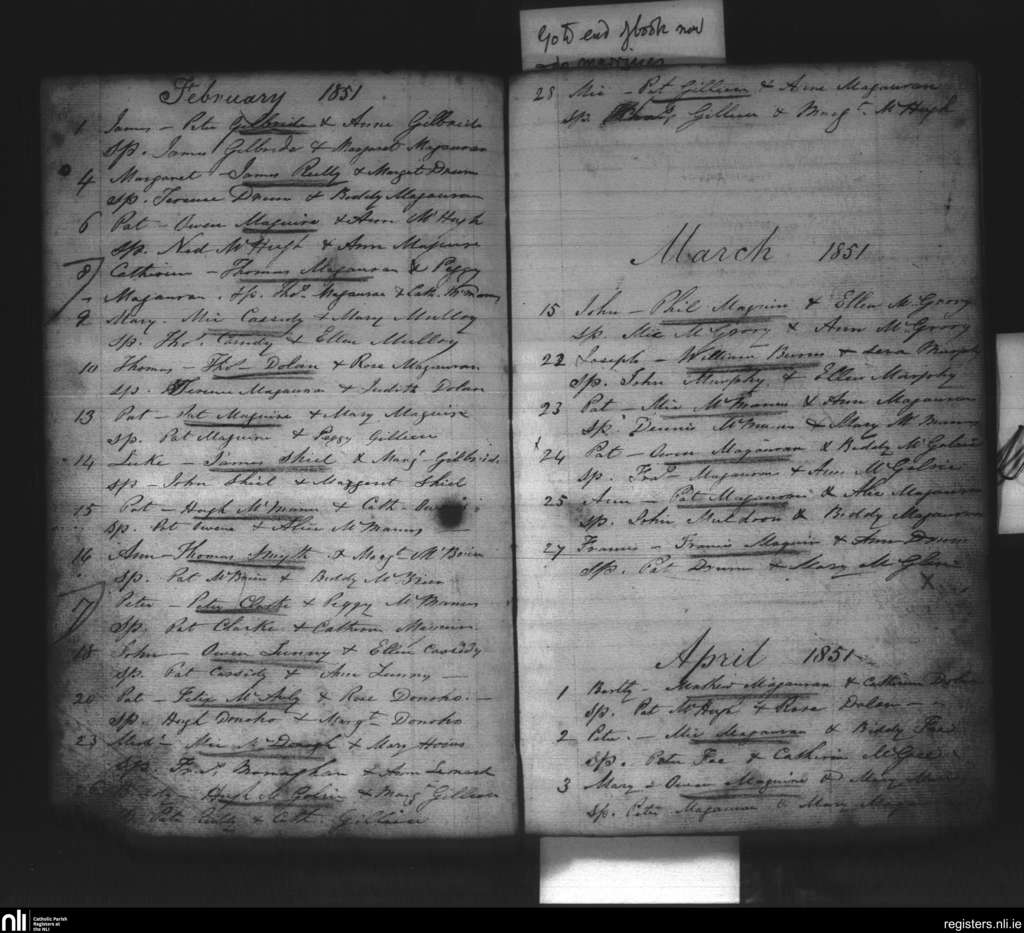 Go to end of book now
February 1851
1 James - Peter Gilbride & Anne Gilbride
Sp. James Gilbride & Margaret Magauran
4 Margaret - James Reilly & Margt Drum
Sp. Terence Drum & Biddy Magauran
6 Pat - Owen Maguire & Ann McHugh
Sp. Ned McHugh & Ann Maguire
8 Catherine - Thomas Magauran & Peggy
Magauran. Sp. Thos. Magauran & Cath.
9 Mary. Mic Cassidy & Mary Mulloy
Sp. Thos. Cassidy & Ellen Mulloy
10 Thomas - Thos - Dolan & Rose Magauran
Sp. Terence Magauran & Judith Dolan
13 Pat - Pat Maguire & Mary Maguire
Sp. Pat Maguire & Peggy Gilleen
14 Luke - James Shiel & Marg. Gilbride
Sp - John Shiel & Margaret Shiel
15 Pat - Hugh McMann & Cath. Owens
Sp. Pat Owens & Alice McManus
16 Ann - Thomas Smyth & Margt. McBrien
Sp. Pat McBrien & Biddy McBrien
17 Peter - Peter Clarke & Peggy McManus
Sp. Pat Clarke & Catherine Maguire
18 John - Owen Lunny & Ellen Cassiddy
Sp. Pat Cassidy & Ann Lunny -
20 Pat - Felix McAuly & Rose Donoho. -
Sp. Hugh Donoho & Margt. Donoho
23 Mic McDonagh & Mary
Sp. Frs. Bronaghan & Ann Leonard
Hugh McGolrie & Marg. Gilleen
Sp. Pete Reilly & Cath. Gilleen
28 Mic - Pat Gilleen & Anne Magauran
Sp. Gilleen & Margt. McHugh
March 1851
15 John - Phil Maguire & Ellen McGrory
Sp. Mic McGrory & Ann McGrory
22 Joseph - William Burns & Murphy
Sp. John Murphy & Ellen Murphy
23 Pat - Mic McManus & Ann Magauran
Sp. Dennis McManus & Mary McManus
24 Pat - Owen Magauran & Biddy McGolric
Sp. Frs. Magauran & Ann McGolric
25 Ann - Pat Magauran & Alice Magauran
Sp. John Muldoon & Biddy Magauran
27 Francis - Francis Maguire & Ann Drum
Sp. Pat Drum & Mary McGlone
X
April 1851
1 Bartly - Mathew Magauran & Catherine Dolan
Sp. Pat McHugh & Rose Dolan -
2 Peter. - Mic Magauran & Biddy Fee
Sp. Peter Fee & Catherine McGee
3 Mary - Owen Maguire & Mary
Sp. Peter Magauran & Mary
nli Catholic Parish
Registers at
the NLI
registers.nli.ie